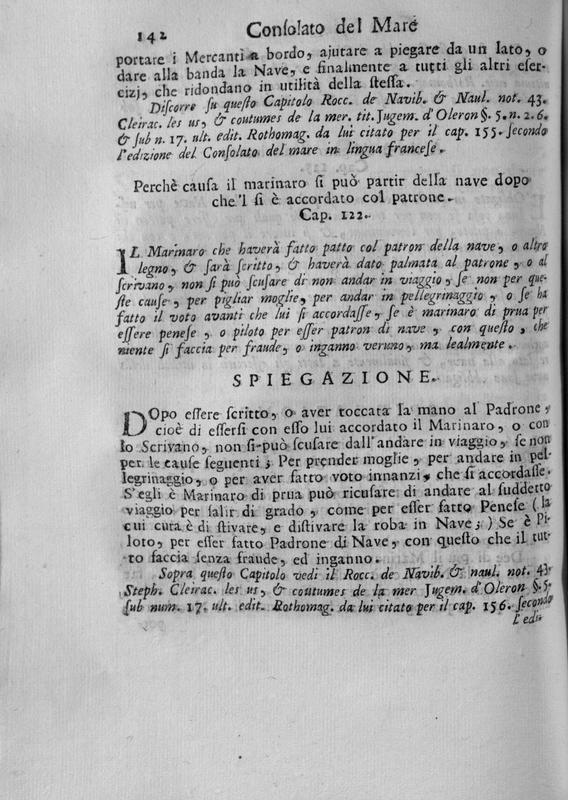 142 Conſolato del Mare
portare i Mercanti a bordo, ajutare a piegare da un lato, o
dare alla banda la Nave, e finalmente a tutti gli altri eſer-
cizj, che ridondano in utilità della ſteſſa.
Diſcorre ſu queſto Capitolo Rocc. de Navib. & Naul. not. 43.
Cleirac. les us, & coutumes de la mer. tit. Jugem. d'Oleron §. 5. n. 2. 6.
& ſub n. 17. ult. edit. Rothomag. da lui citato per il cap. 155. ſecondo
l'edizione del Conſolato del mare in lingua franceſe.
Perchè cauſa il marinaro ſi può partir della nave dopo
che'l ſi è accordato col patrone.
Cap. 122.
IL Marinaro che haverà fatto patto col patron della nave, o altro
legno, & ſarà ſcritto, & haverà dato palmata al patrone, o al
ſcrivano, non ſi può ſcuſare di non andar in viaggio, ſe non per que-
ſte cauſe, per pigliar moglie, per andar in pellegrinaggio, o ſe ha
fatto il voto avanti che lui ſi accordaſſe, ſe è marinaro di prua per
eſſere peneſe, o piloto per eſſer patron di nave, con queſto, che
niente ſi faccia per fraude, o inganno veruno, ma lealmente.
SPIEGAZIONE.
DOpo eſſere ſcritto, o aver toccata la mano al Padrone,
cioè di eſſerſi con eſſo lui accordato il Marinaro, o con
lo Scrivano, non ſi può ſcuſare dall'andare in viaggio, ſe non
per le cauſe ſeguenti; Per prender moglie, per andare in pel-
legrinaggio, o per aver fatto voto innanzi, che ſi accordaſſe.
S'egli è Marinaro di prua può ricuſare di andare al ſuddetto
viaggio per ſalir di grado, come per eſſer fatto Peneſe (la
cui cura è di ſtivare, e diſtivare la roba in Nave;) Se è Pi-
loto, per eſſer fatto Padrone di Nave, con queſto che il tut-
to faccia ſenza fraude, ed inganno.
Sopra queſto Capitolo vedi il Rocc. de Navib. & naul. not. 43.
Steph. Cleirac. les us, & coutumes de la mer Jugem. d'Oleron §. 5.
ſub num. 17. ult. edit. Rothomag. da lui citato per il cap. 156. ſecondo
l'edi-